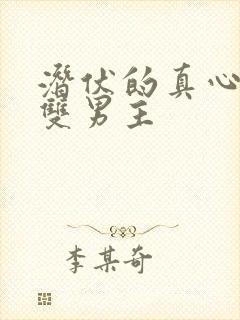 潛伏的真心
雙男主
李某奇